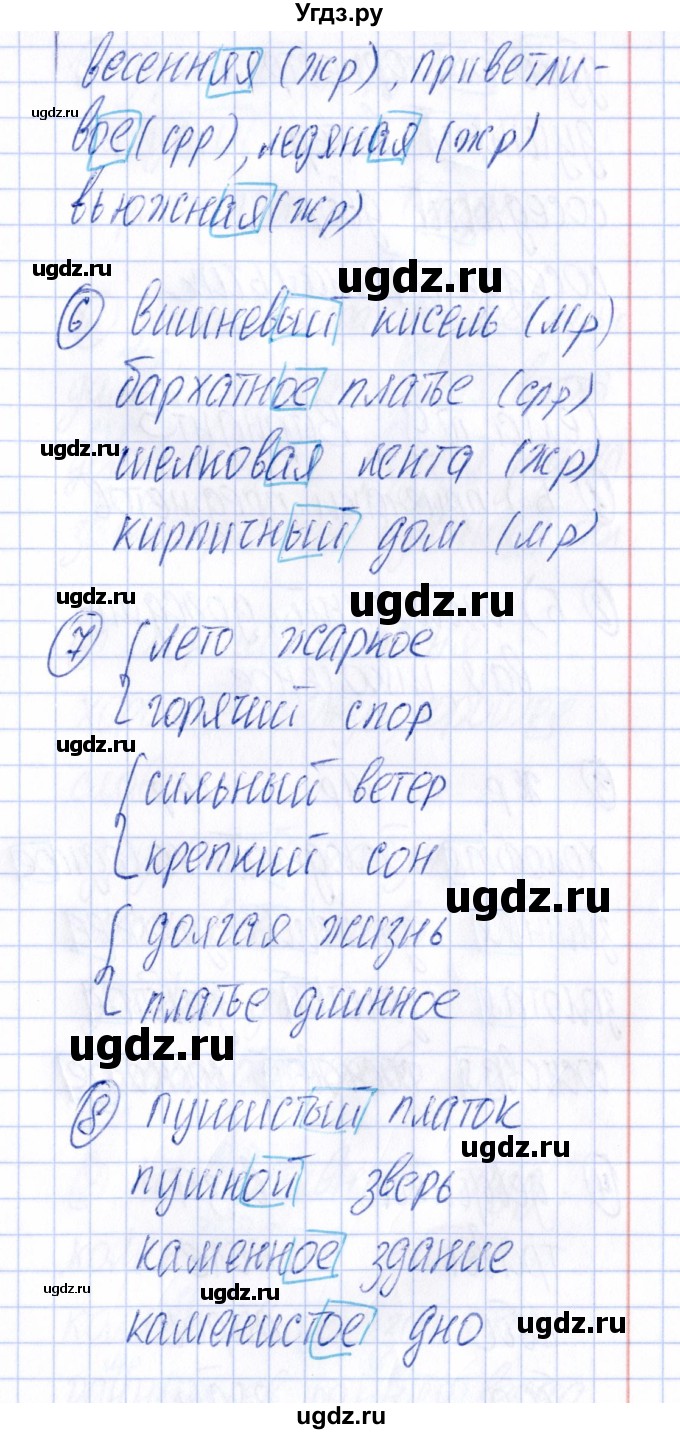 Угдз.ру
весенняя (жр), приветли-
вое (срр), ледяная (жр)
вьюжная (жр)
ugdz.ru
ugdz.ru
ugdz.ru
⑥ вишневый кисель (мр)
бархатное платье (срр)
шелковая лента (жр)
ugdz.ru
кирпичный дом (мр)
ugdz.ru
ugdz.ru
⑦ лето жаркое
горячий спор
ugdz.ru
сильный ветер
крепкий сон
ugdz.ru
долгая жизнь
платье длинное
ugdz.ru
⑧ пушистый платок
ugdz.ru
пушной зверь
каменное здание
ugdz.ru
ugdz.ru
каменистое дно
ugdz.ru
ugdz.ru